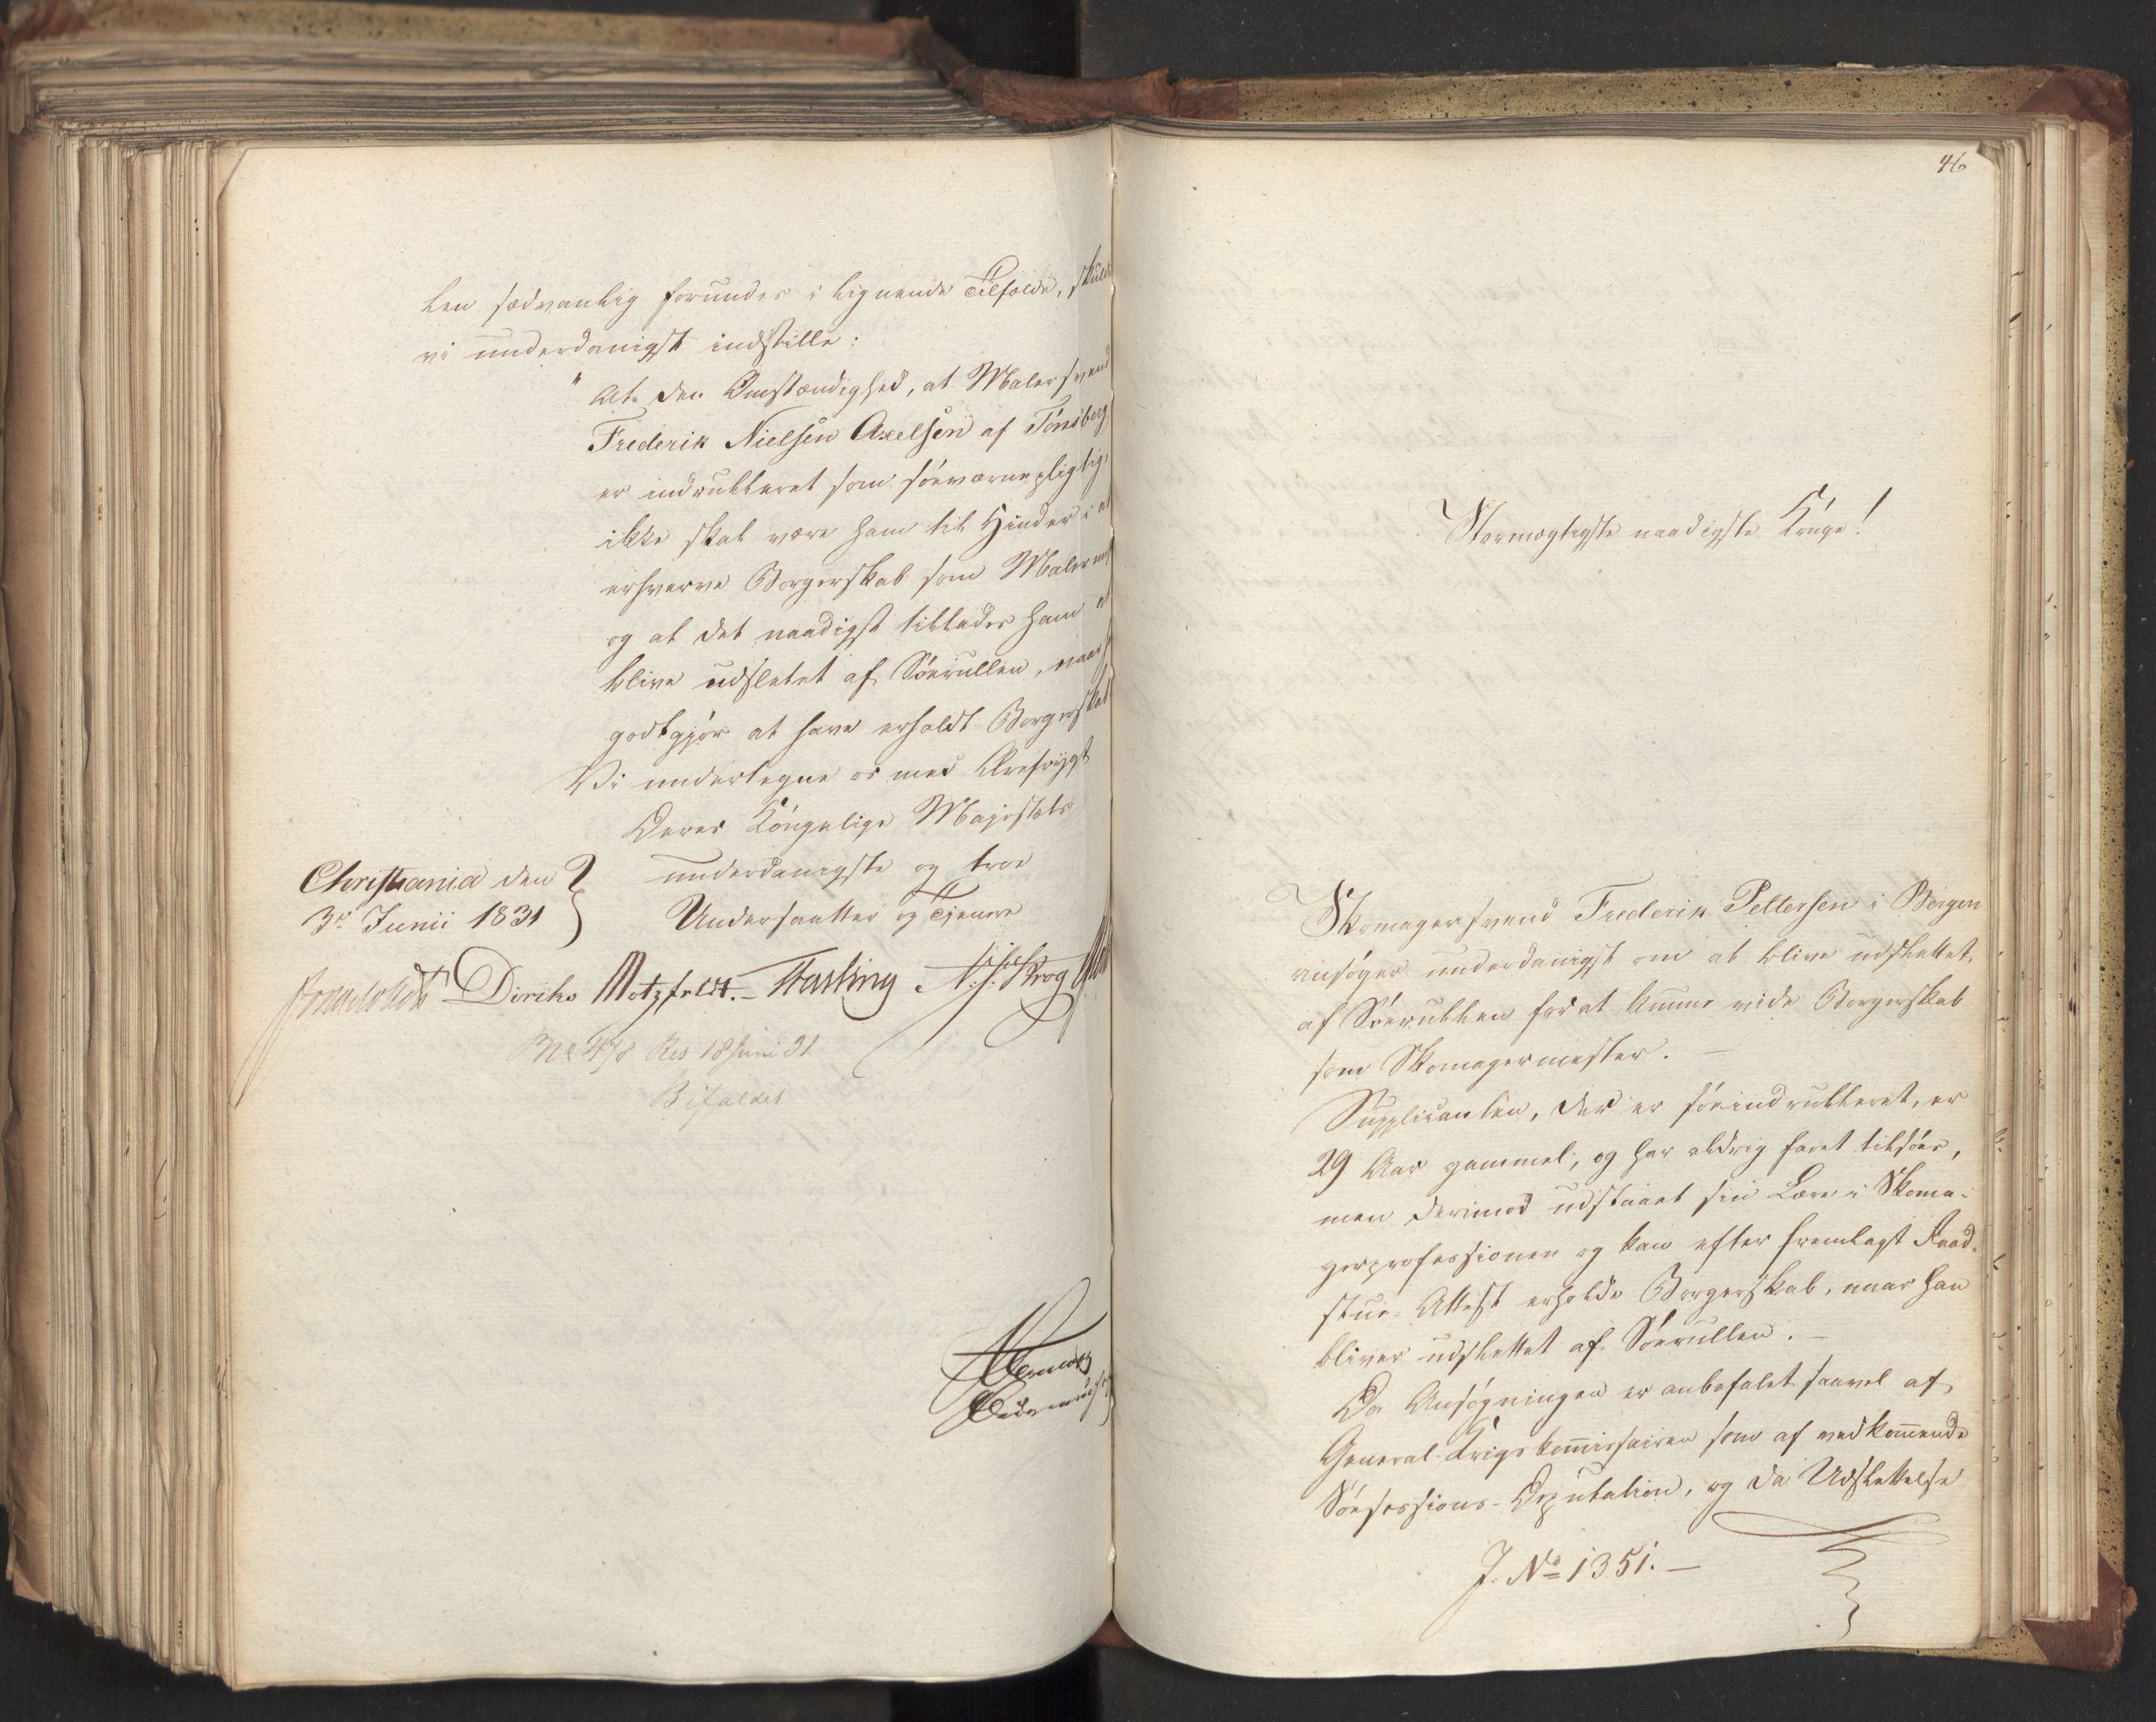 len sædvanlig forundes i lignende Tilfælde, skulle
vi underdanigst indstille:
"At den Omstændighed, at Malersvend
Frederik Nielsen Axelsen af Tönsberg
er indrulleret som söeværnepligtig,
ikke skal være ham til Hinder i at
erhverve Borgerskab som Maler
og at det naadigst tillades ham at
blive udslettet af Söerullen, naar
godtgjör at have erholdt Borgerskab
Vi undertegne os med Ærefrygt
Deres Kongelige Majestæts
underdanigste og troe
Undersaatter og Tjenere
Christiania den
3die Junii 1831
Diriks Motzfeldt. Fasting Krog
No 478 Res 18 Juni 31
Bifaldes
46
Stormægtigste naadigste Konge!
Skomagersvend Frederik Pettersen i Bergen
ansöger underdanigst om at blive udslettet
af Söerullen for at kunne vinde Borgerskab
som Skomagermester. —
Supplicanten, der er söeindrulleret, er
29 Aar gammel, og har aldrig faret tilsöes,
men derimod udstaaet sin Lære i Skoma-
gerprofessionen og kan efter fremlagt Raad-
stue-Attest erholde Borgerskab, naar han
bliver udslettet af Söerullen. —
Da Ansögningen er anbefalet saavel af
General-Krigskommissairen som af vedkommende
Söesessions-Deputation, og da Udslettelse
J. No 1351. —